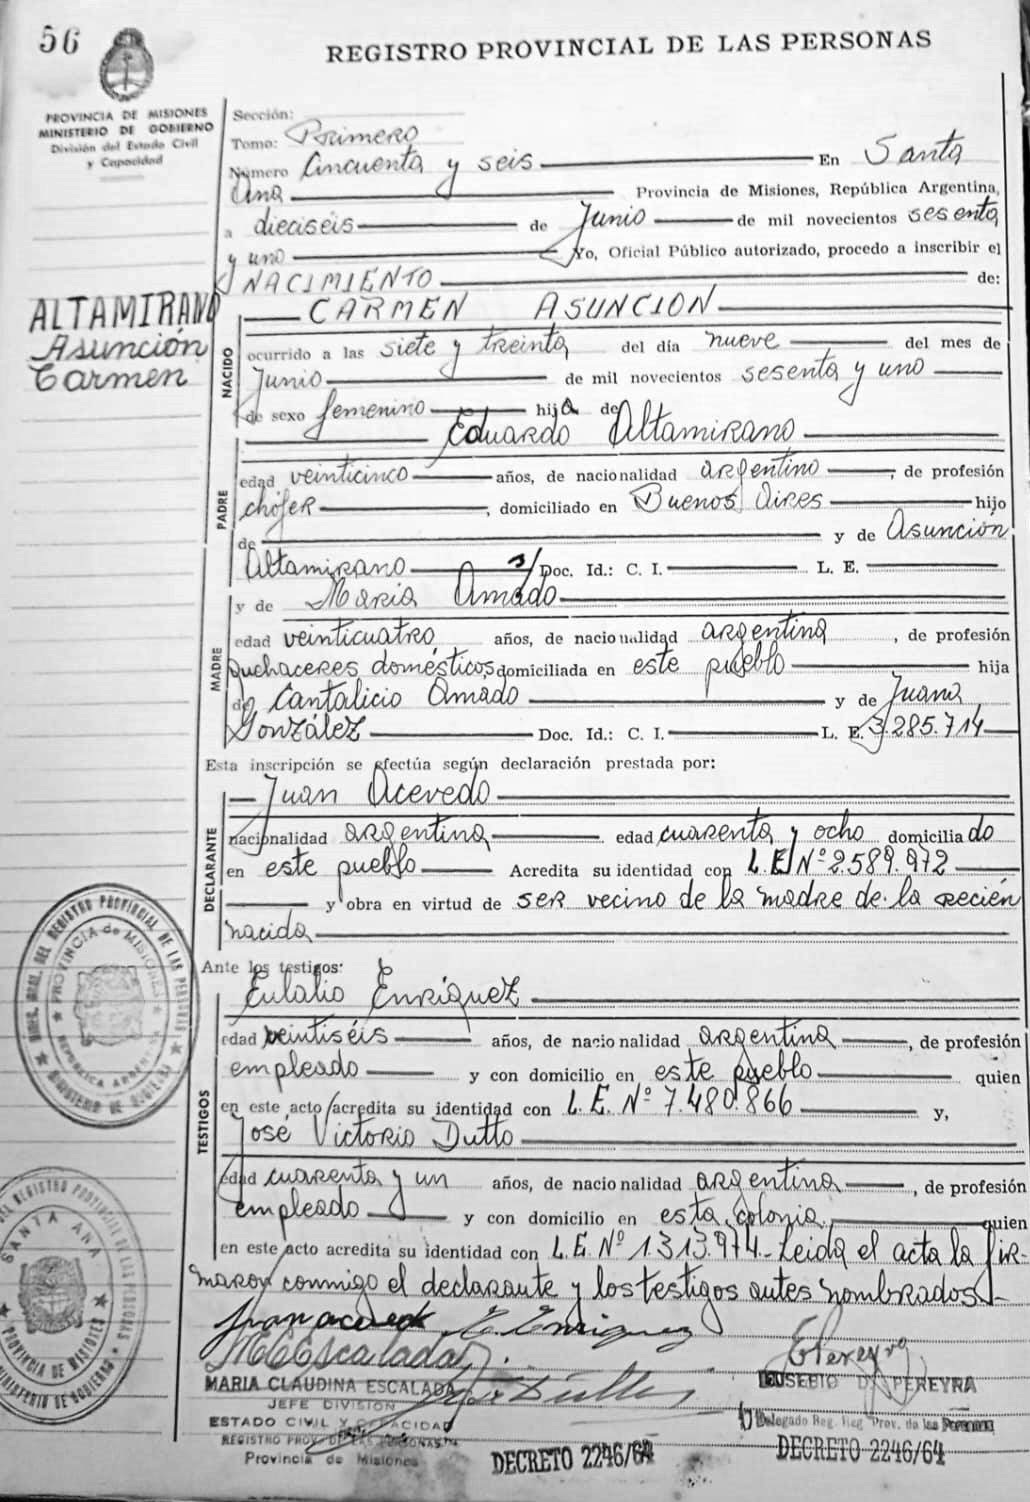 56
REGISTRO PROVINCIAL DE LAS PERSONAS
PROVINCIA DE MISIONES
MINISTERIO DE GOBIERNO
División del Estado Civil
y Capacidad
Sección:
Tomo: Primero
Número Cincuenta y seis En Santa
Ana Provincia de Misiones, República Argentina,
a dieciseis de Junio de mil novecientos sesenta
y uno Yo, Oficial Público autorizado, procedo a inscribir el
NACIMIENTO de:
ALTAMIRANO
Asunción
Carmen
NACIDO
CARMEN ASUNCION
ocurrido a las siete y treinta del día nueve del mes de
Junio de mil novecientos sesenta y uno
de sexo femenino hija de
PADRE
Eduardo Altamirano
edad veinticinco años, de nacionalidad argentino, de profesión
chófer, domiciliado en Buenos Aires hijo
de y de Asunción
Altamirano Doc. Id.: C. I. L. E.
MADRE
y de Maria Amado
edad veinticuatro años, de nacionalidad argentina, de profesión
quehaceres domésticos, domiciliada en este pueblo hija
de Cantalicio Amado y de Juana
González Doc. Id.: C. I. L. E. 3.285.714
Esta inscripción se efectúa según declaración prestada por:
DECLARANTE
Juan Acevedo
nacionalidad argentina edad cuarenta y ocho domiciliado
en este pueblo Acredita su identidad con L.E. Nº 2.589.972
y obra en virtud de ser vecino de la madre de la recién
nacida
Ante los testigos:
TESTIGOS
Eulalio Enriquez
edad veintiséis años, de nacionalidad argentina, de profesión
empleado y con domicilio en este pueblo quien
en este acto acredita su identidad con L.E. Nº 7.480.866 y,
José Victorio Dutto
edad cuarenta y un años, de nacionalidad argentina, de profesión
empleado y con domicilio en esta colonia, quien
en este acto acredita su identidad con L.E. Nº 1.313.974.- Leida el acta la fir-
maron conmigo el declarante y los testigos antes nombrados.-
Juan acevedo E. Enriquez
MCEscalada EPereyra
MARIA CLAUDINA ESCALADA
JEFE DIVISIÓN
ESTADO CIVIL Y CAPACIDAD
REGISTRO PROV. DE LAS PERSONAS
Provincia de Misiones
EUSEBIO PEREYRA
Delegado Reg. Prov. de las Personas
DECRETO 2246/64
DECRETO 2246/64
DEL REGISTRO PROVINCIAL DE LAS PERSONAS
PROVINCIA de MISIONES
REPUBLICA ARGENTINA
MINISTERIO DE GOBIERNO
DEL REGISTRO PROVINCIAL DE LAS PERSONAS
SANTA ANA
PROVINCIA DE MISIONES
MINISTERIO DE GOBIERNO